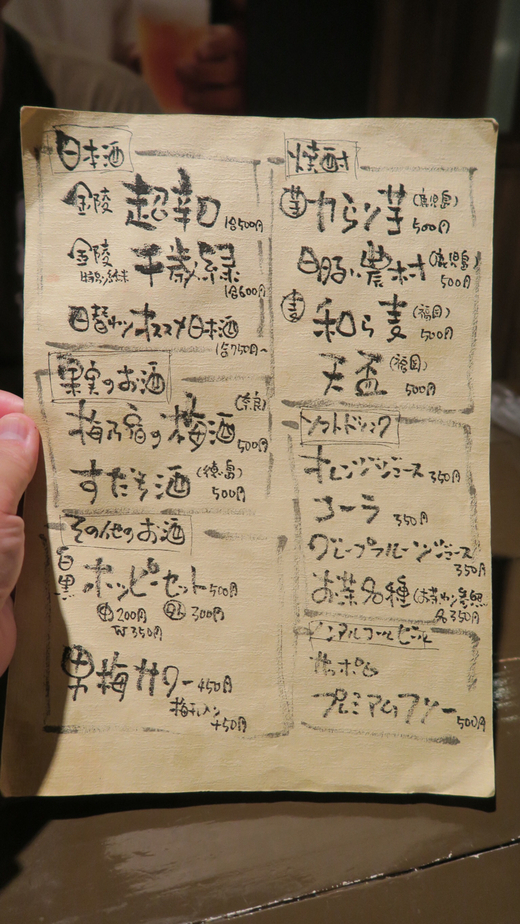 日本酒
金陵 超辛口 1合500円
金陵 千歳緑
1合600円
日替わりオススメ日本酒
1合750円~
果実のお酒
梅乃宿の梅酒 (奈良) 500円
すだち酒 (徳島) 500円
その他のお酒
白 黒 ホッピーセット 500円
中200円 外300円
W350円
男梅サワー 450円
梅干し
+50円
焼酎
芋 からり芋 (鹿児島) 500円
農村 (鹿児島) 500円
麦 和ら麦 (福岡) 500円
天盃 (福岡) 500円
ソフトドリンク
オレンジジュース 350円
コーラ 350円
グレープフルーツジュース 350円
お茶各種 (お茶メニュー参照)
各350円
ノンアルコールビール
サッポロ
プレミアムフリー 500円